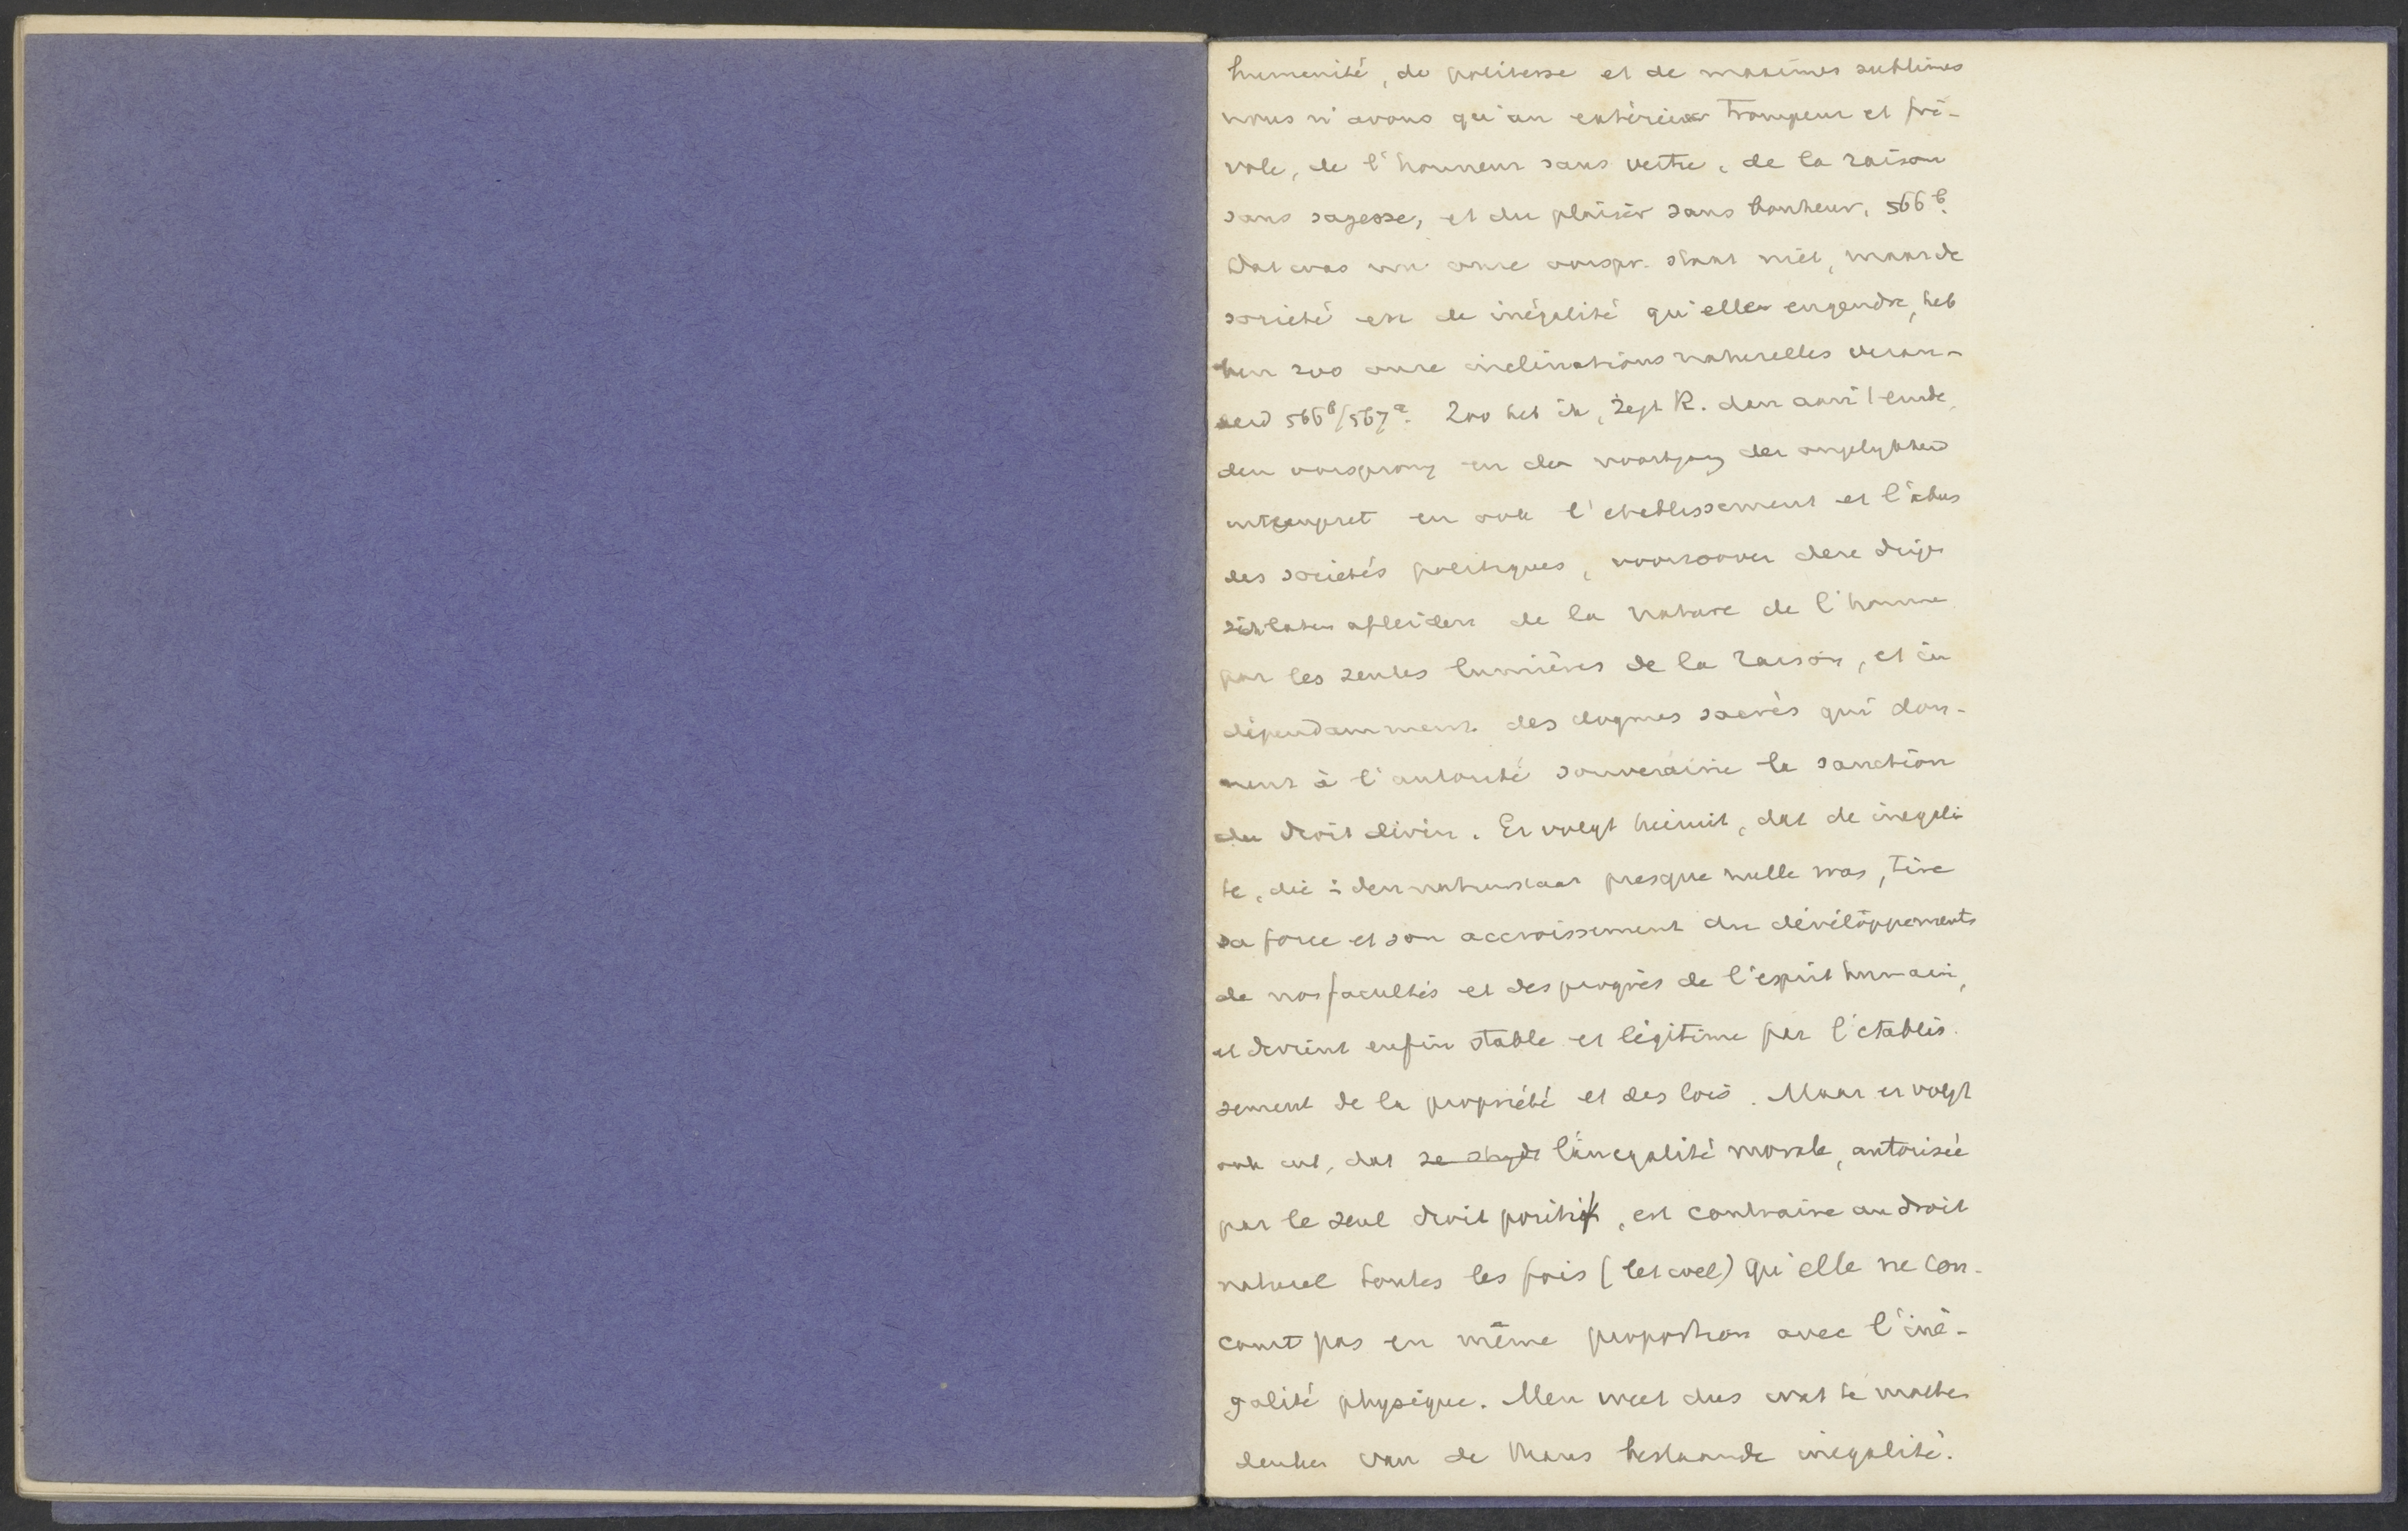 humanité, de politesse et de maximes sublimes
nous n'avons qu'un extérieur trompeur et fri-
vole, de l'honneur sans vertu, de la raison
sans sagesse, et du plaisir sans bonheur. 566b.
Dat was in onze oorspr. staat niet, maar de
société en de inégalité qu'elle engendre, heb
ben zoo onze inclinations naturelles veran-
derd 566b/567a. Zoo heb ik, zegt R. dan aan 't einde,
den oorsprong en den voortgang der ongelijkheid
uiteengezet en ook l'etablissement et l'abus
des sociétés politiques, voorzoover deze dingen
zich laten afleiden de la nature de l'homme
par les seules lumières de la raison, et in
dépendamment des dogmes sacrés qui don-
nent à l'autorité souveraine la sanction
du droit divin. Er volgt hieruit, dat de inegali
te, die i den natuurstaat presque nulle was, tire
sa force et son accroissement du dévéloppements
de nos facultés et des progrès de l'esprit humain,
et devient enfin stable et légitime par l'etablis
sement de la propriété et des lois. Maar er volgt
ook uit, dat l'inegalité morale, autorisée
par le seul droit positif, est contraire au droit
naturel toutes les fois (let wel) qu'elle ne con-
court pas en même proportion avec l'iné-
galité physique. Men weet dus wat te moeten
denken van de thans bestaande inegalité.